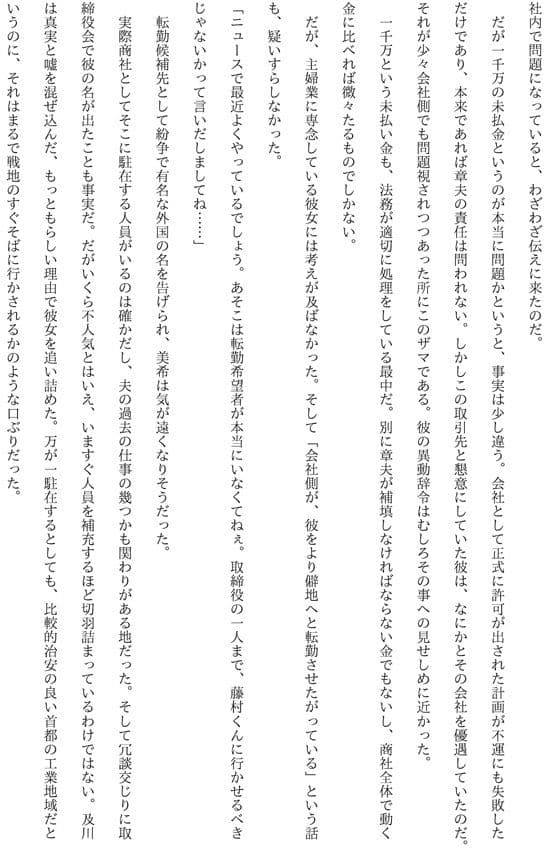 社内で問題になっていると、わざわざ伝えに来たのだ。
　だが一千万の未払金というのが本当に問題かというと、事実は少し違う。会社として正式に許可が出された計画が不運にも失敗した
だけであり、本来であれば章夫の責任は問われない。しかしこの取引先と懇意にしていた彼は、なにかとその会社を優遇していたのだ。
それが少々会社側でも問題視されつつあった所にこのザマである。彼の異動辞令はむしろその事への見せしめに近かった。
　一千万という未払い金も、法務が適切に処理をしている最中だ。別に章夫が補填しなければならない金でもないし、商社全体で動く
金に比べれば微々たるものでしかない。
　だが、主婦業に専念している彼女には考えが及ばなかった。そして「会社側が、彼をより僻地へと転勤させたがっている」という話
も、疑いすらしなかった。
「ニュースで最近よくやっているでしょう。あそこは転勤希望者が本当にいなくてねぇ。取締役の一人まで、藤村くんに行かせるべき
じゃないかって言いだしましてね……」
　転勤候補先として紛争で有名な外国の名を告げられ、美希は気が遠くなりそうだった。
　実際商社としてそこに駐在する人員がいるのは確かだし、夫の過去の仕事の幾つかも関わりがある地だった。そして冗談交じりに取
締役会で彼の名が出たことも事実だ。だがいくら不人気とはいえ、いますぐ人員を補充するほど切羽詰まっているわけではない。及川
は真実と嘘を混ぜ込んだ、もっともらしい理由で彼女を追い詰めた。万が一駐在するとしても、比較的治安の良い首都の工業地域だと
いうのに、それはまるで戦地のすぐそばに行かされるかのような口ぶりだった。